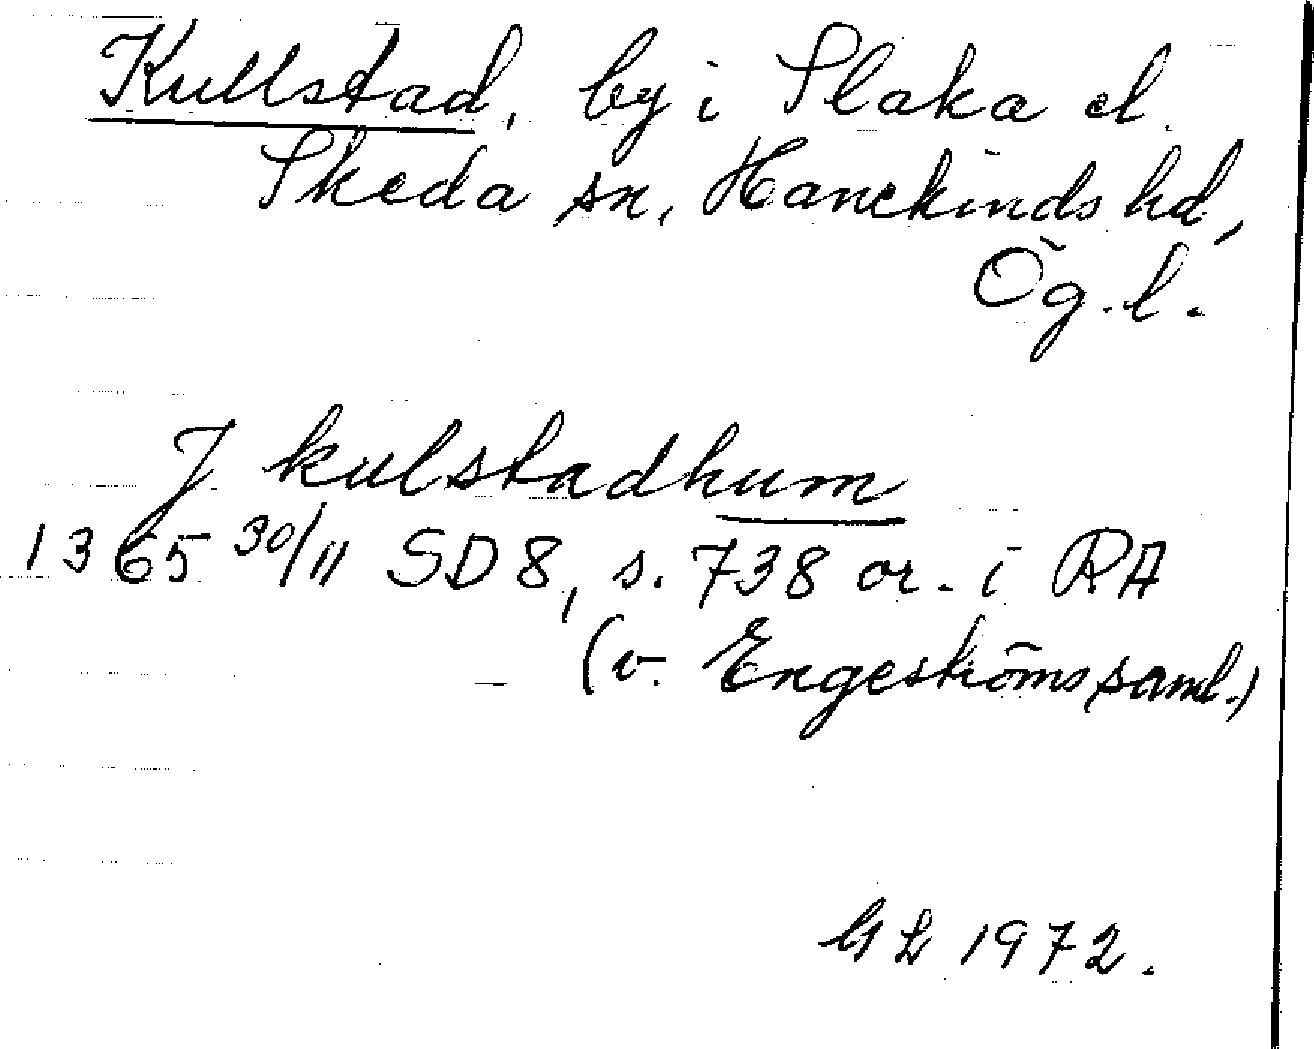 Kullstad, by i Slaka el.
Skeda sn, Hanekinds hd,
Ög. l.
J kulstadhum
1365 30/11 SD 8, s. 738 or. i RA
(v. Engeströms saml.)
GL 1972.